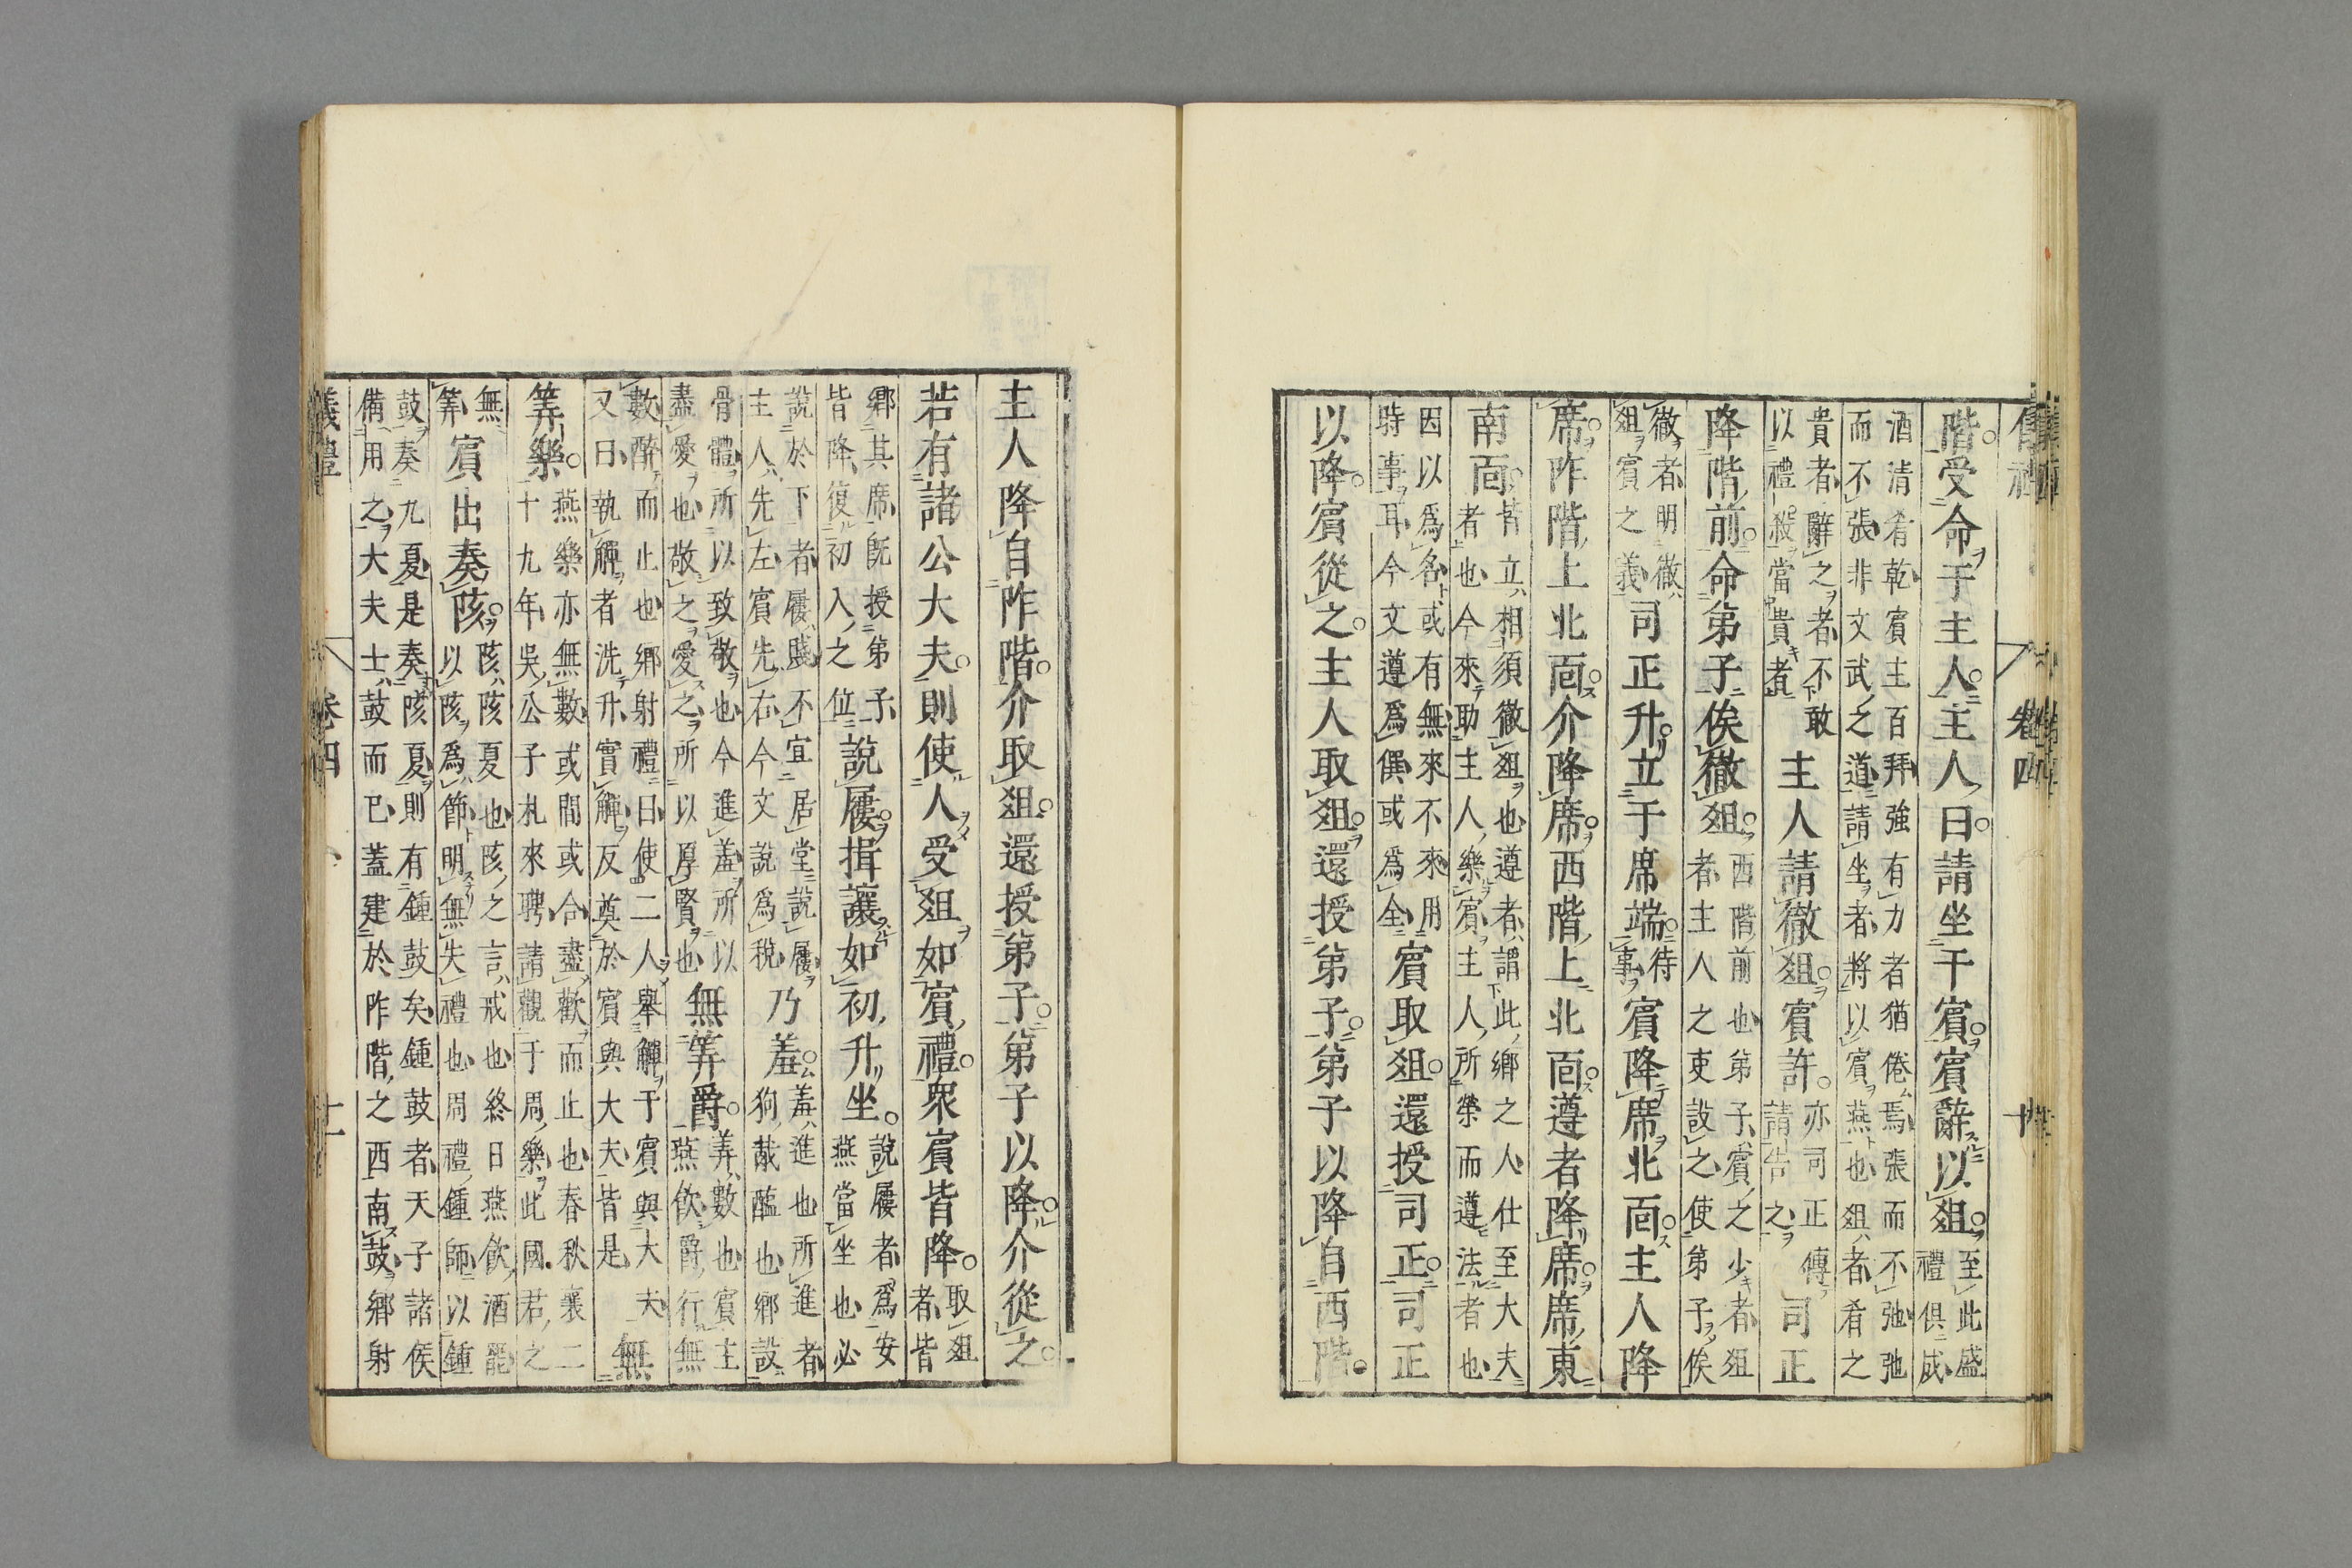 階受命于主人主人曰請坐于賓賓辭以俎至此盛禮俱成
酒清肴乾賓主百拜強有力者猶倦焉張而不弛弛
而不張非文武之道請坐者將以賓燕也俎者肴之
貴者辭之者不敢以禮殺當貴者主人請徹俎賓許亦司正傳請告之司正
降階前命弟子俟徹俎西階前也弟子賓之少者俎者主人之吏設之使弟子俟
徹者明徹俎賓之義司正升立于席端待事賓降席北面主人降
席阼階上北面介降席西階上北面遵者降席席東
南面皆立相須徹俎也遵者謂此鄉之人仕至大夫者也今來助主人樂賓主人所榮而遵法者也
因以爲名或有無來不來用時事耳今文遵爲僎或爲全賓取俎還授司正司正
以降賓從之主人取俎還授弟子弟子以降自西階
主人降自阼階介取俎還授弟子弟子以降介從之
若有諸公大夫則使人受俎如賓禮衆賓皆降取俎者皆
鄉其席既授弟子皆降復初入之位說屨揖讓如初升坐說屨者爲安燕當坐也必
說於下者屨賤不宜居堂說屨主人先左賓先右今文說爲稅乃羞羞進也所進者狗胾醢也鄉設
骨體所以致敬也今進羞所以盡愛也敬之愛之所以厚賢也無筭爵筭數也賓主燕飮爵行無
數醉而止也鄉射禮曰使二人舉觶于賓與大夫又曰執觶者洗升實觶反奠於賓與大夫皆是無
筭樂燕樂亦無數或間或合盡歡而止也春秋襄二十九年吳公子札來聘請觀于周樂此國君之
無筭賓出奏陔陔陔夏也陔之言戒也終日燕飮酒罷以陔爲節明無失禮也周禮鍾師以鍾
鼓奏九夏是奏陔夏則有鍾鼓矣鍾鼓者天子諸侯
備用之大夫士鼓而已蓋建於阼階之西南鼓鄉射
儀禮 卷四 十一